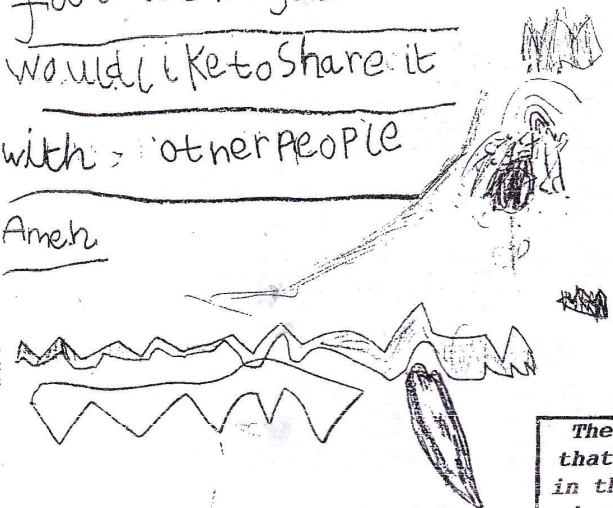 would like to share it
with other people
Amen
The
that
in th